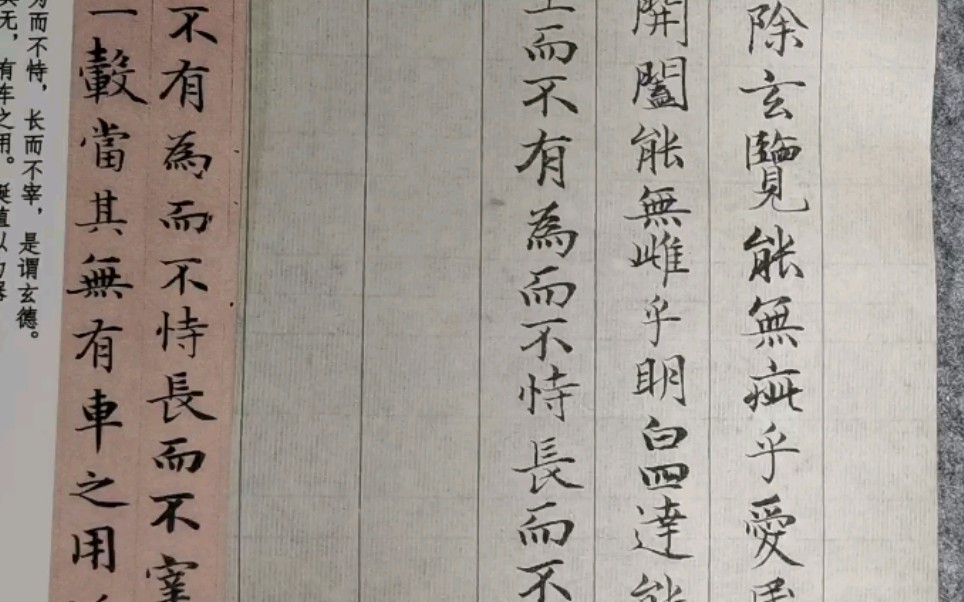 除玄覽能無疵乎愛
開闔能無雌乎明白四達能
而不有為而不恃長而不
不有為而不恃長而不宰
一轂當其無有車之用
而不恃，长而不宰，是谓玄德。
无，有车之用。埏埴以为器